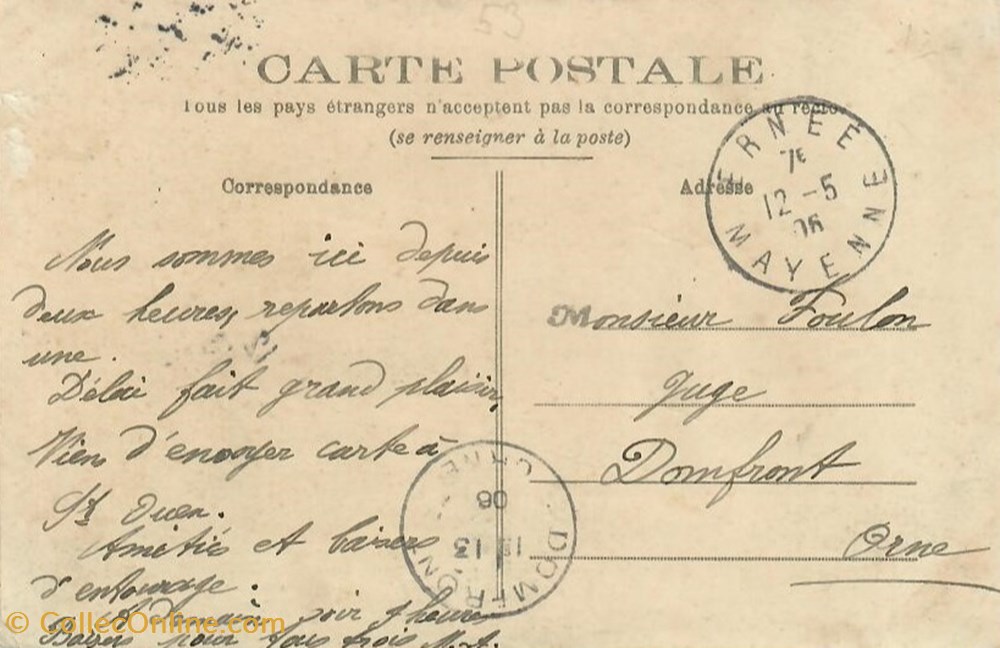 53
CARTE POSTALE
Tous les pays étrangers n'acceptent pas la correspondance au recto.
(se renseigner à la poste)
Correspondance
Adresse
ERNÉE
7E
12 - 5
06
MAYENNE
Nous sommes ici depuis
deux heures, repartons dans
une.
Délai fait grand plaisir,
Viens d'envoyer carte à
St Ouen.
Amitiés et baisers
d'entourage.
A demain soir 9 heures
Baisers pour vous trois M. A.
Monsieur Foulon
Juge
Domfront
Orne
DOMFRONT
13
06
ORNE
© CollecOnline.com